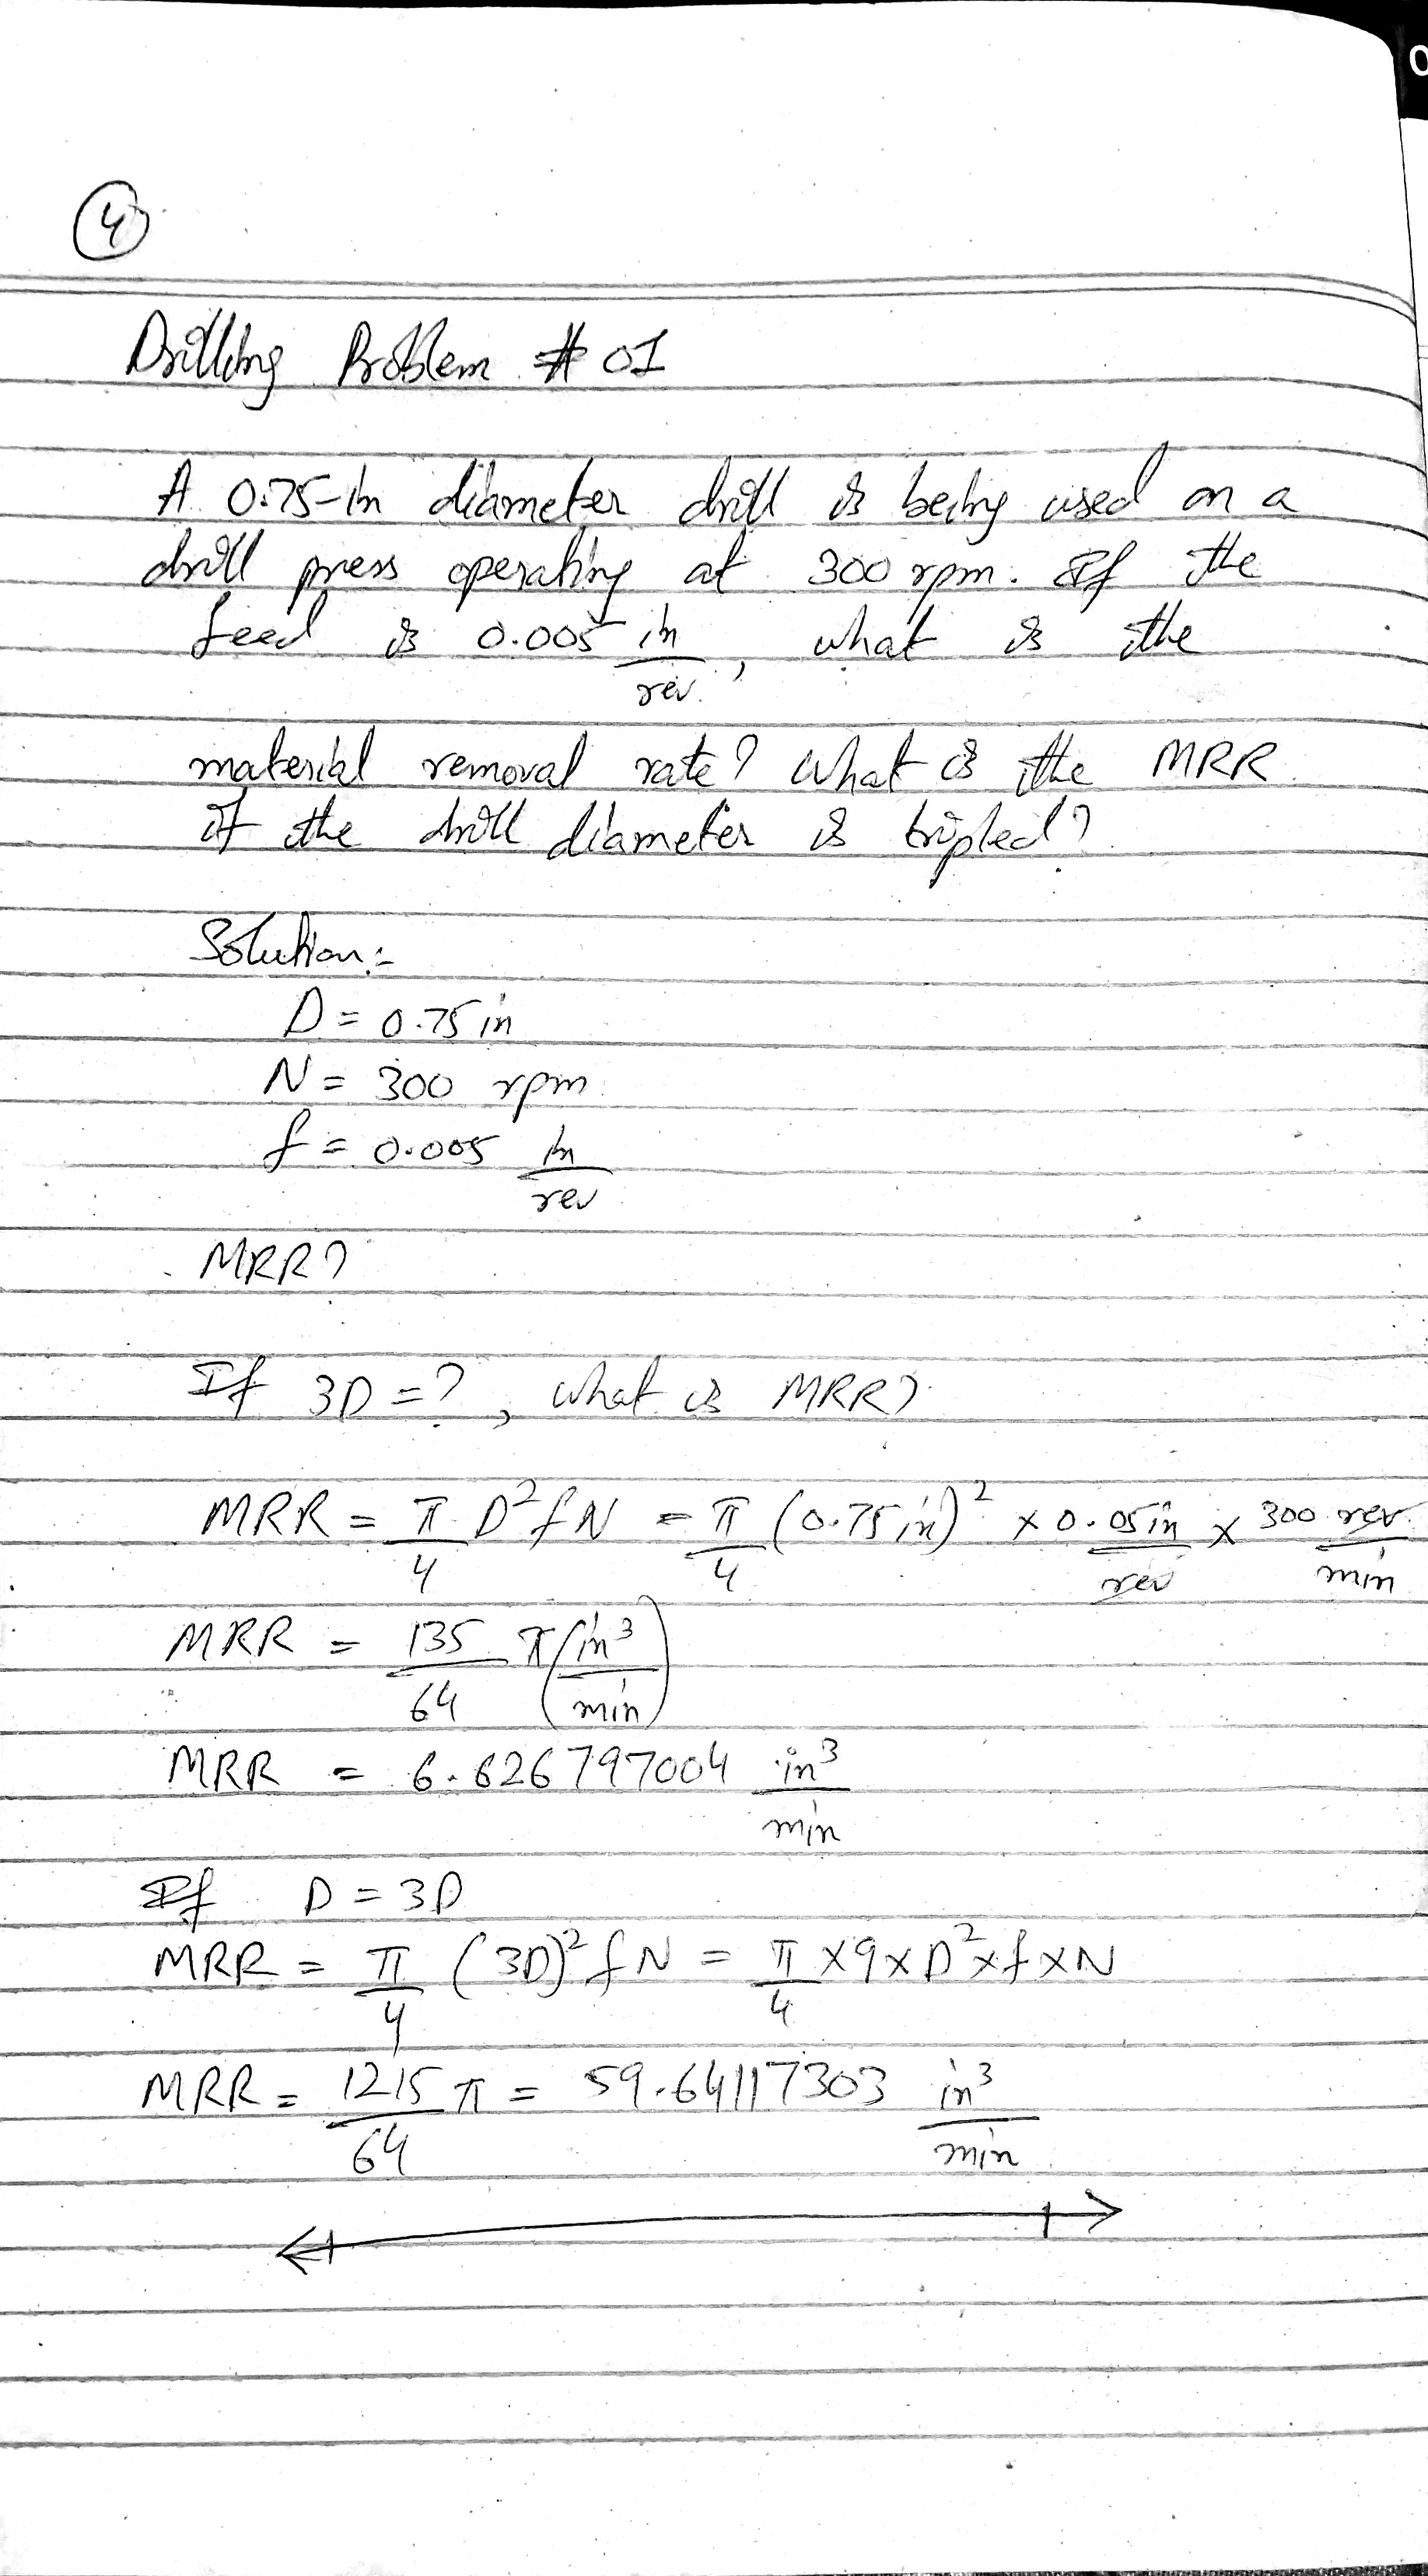 4
Drilling Problem # 01
A 0.75-in diameter drill is being used on a
drill press operating at 300 rpm. If the
feed is 0.005 in/rev, what is the
material removal rate? What is the MRR
if the drill diameter is tripled?
Solution:-
D = 0.75 in
N = 300 rpm
f = 0.005 in/rev
MRR?
If 3D = ?, what is MRR?
MRR = π/4 D² f N = π/4 (0.75 in)² × 0.05 in/rev × 300 rev/min
MRR = 135/64 π (in³/min)
MRR = 6.626797004 in³/min
If D = 3D
MRR = π/4 (3D)² f N = π/4 × 9 × D² × f × N
MRR = 1215/64 π = 59.64117303 in³/min